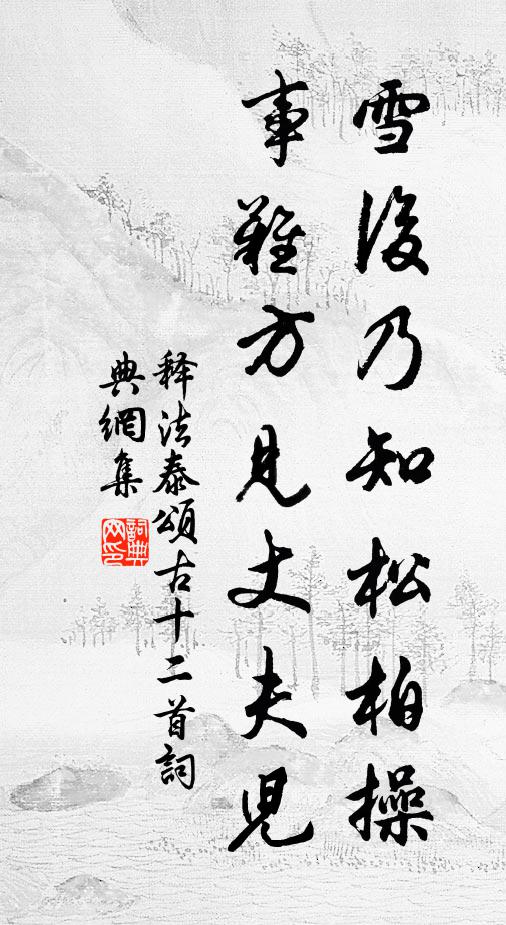 雪後乃知松柏操
事難方見丈夫兒
释法泰頌古十二首詞
典網集
詞典
网印